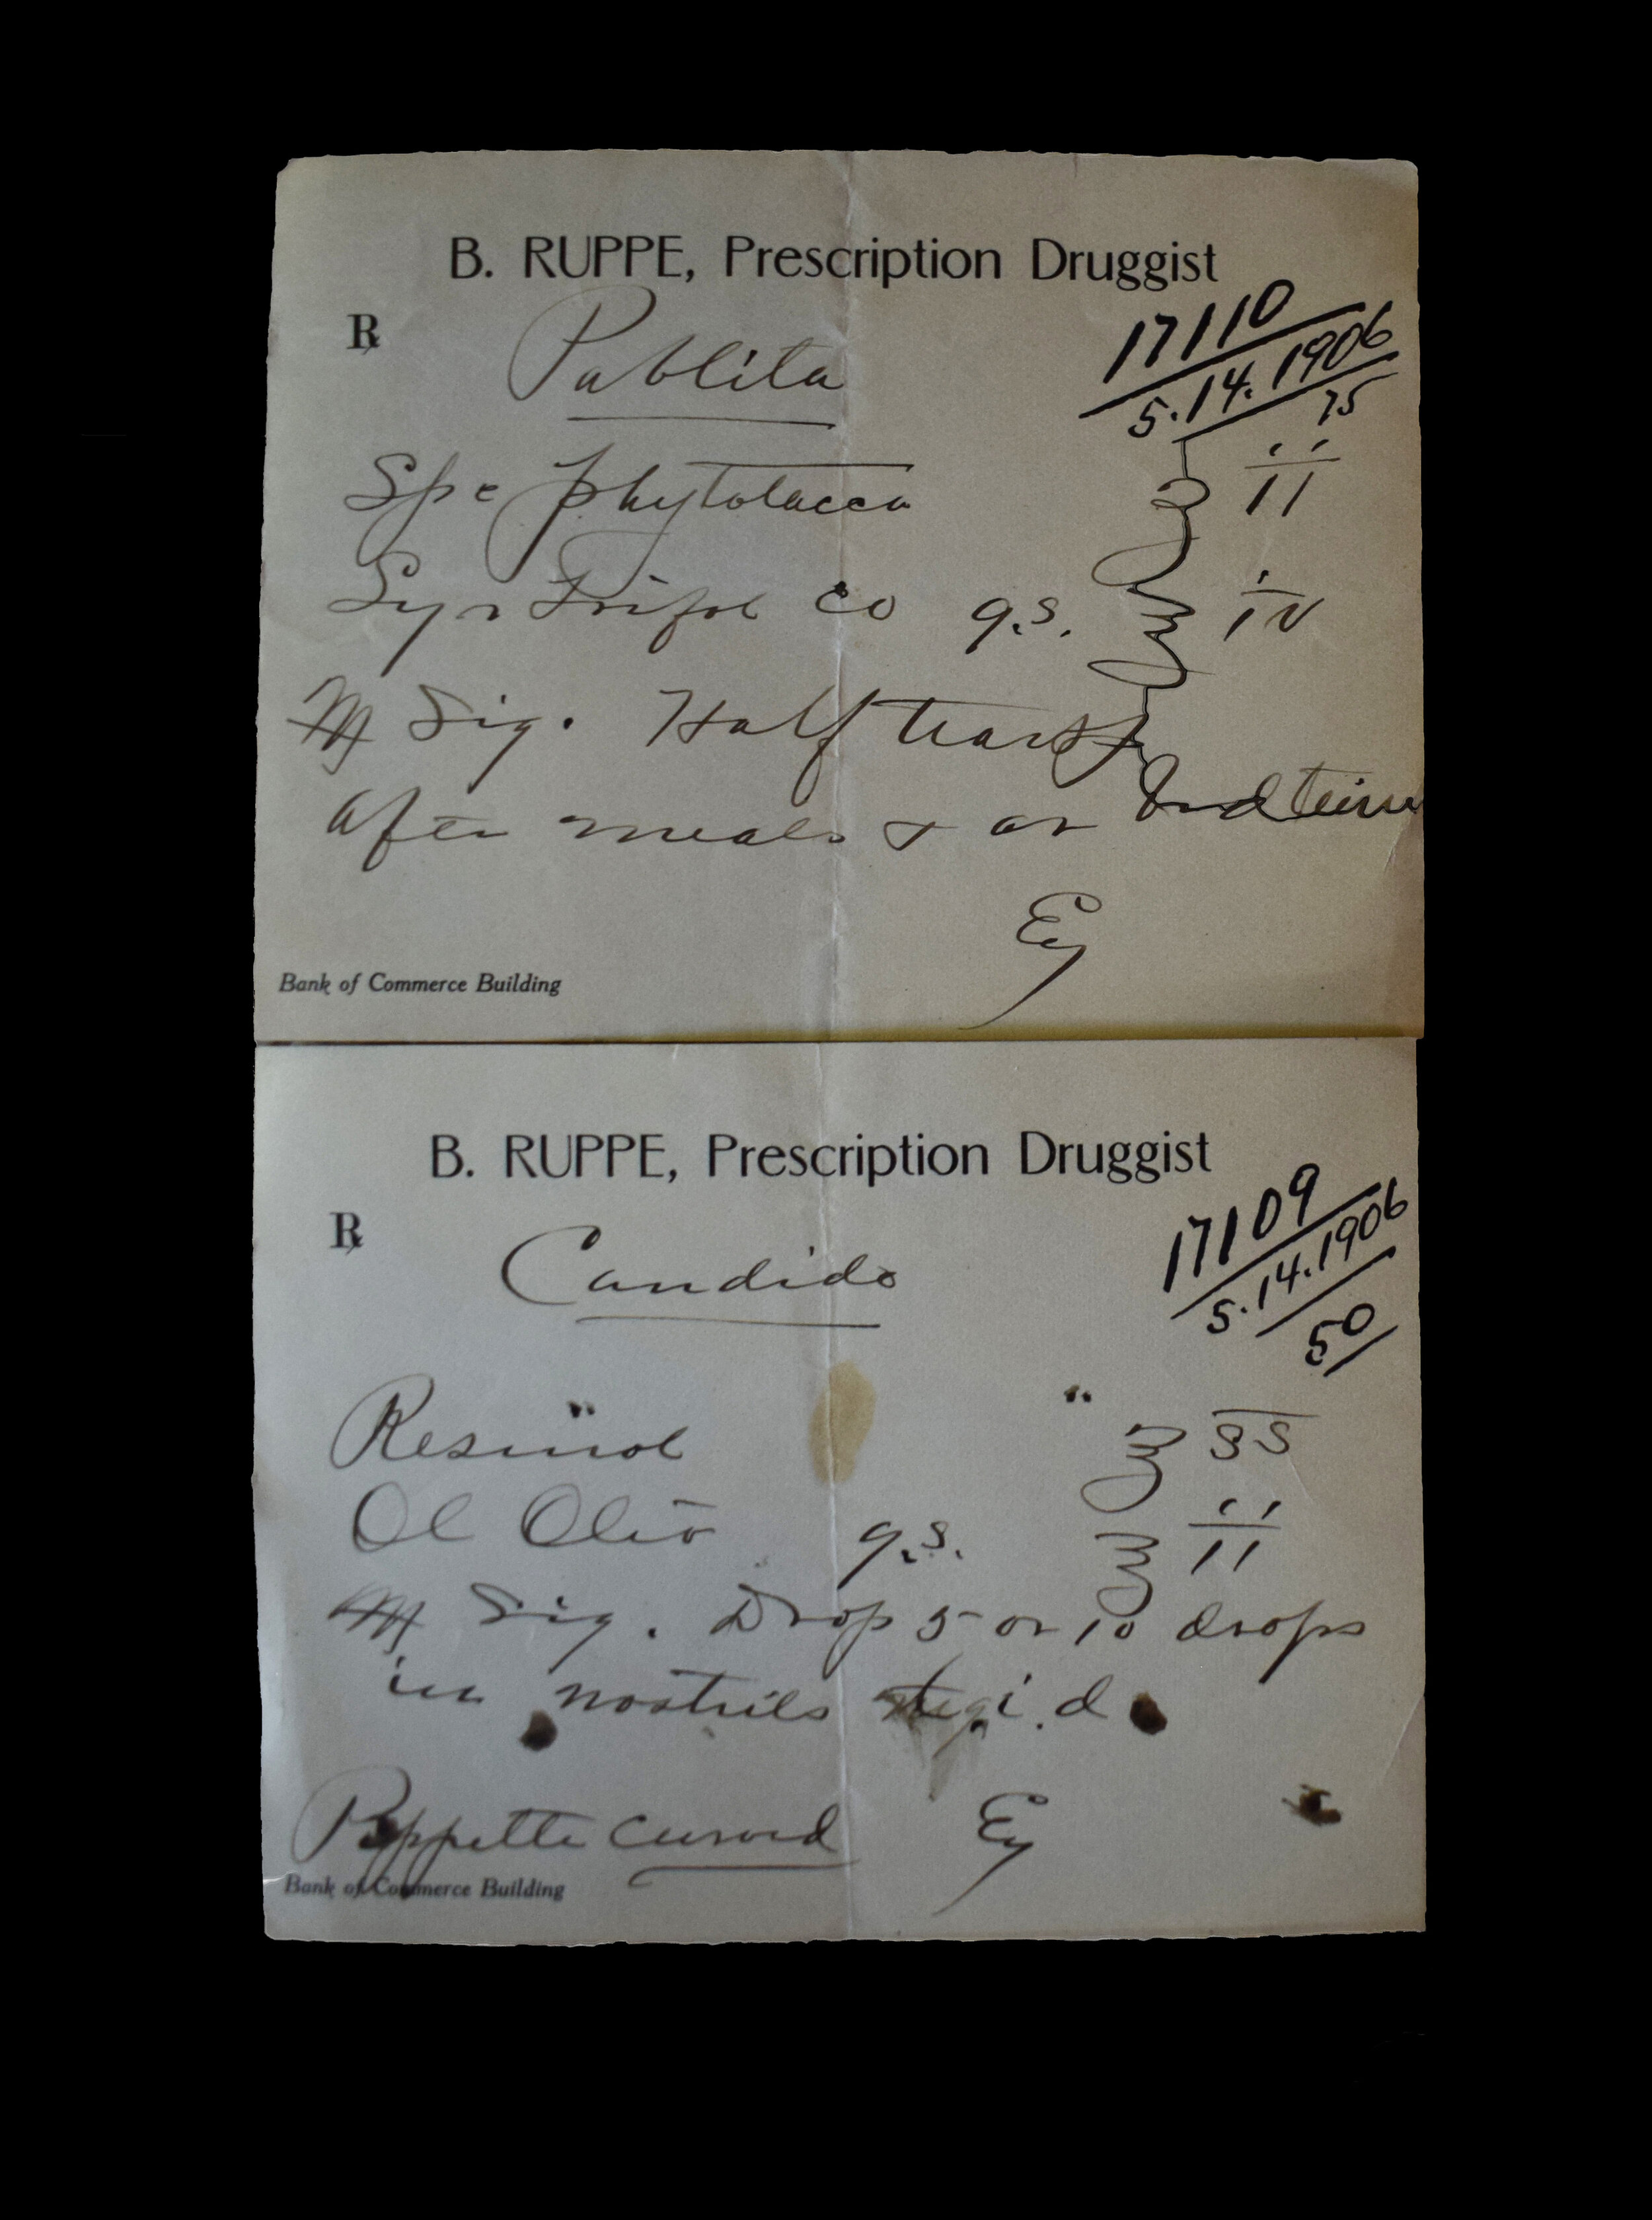 B. RUPPE, Prescription Druggist
℞
Pablita
17110
5.14.1906
75
Spc Phytolacca ʒ ii
Syr Trifol Co q.s. ℥ iv
M Sig. Half teasp
after meals & at bedtime
Ey
Bank of Commerce Building
B. RUPPE, Prescription Druggist
℞
Candido
17109
5.14.1906
50
Resinol ℥ ss
Ol Oliv q.s. ℥ ii
M Sig. Drop 5 or 10 drops
in nostrils q.i.d
Pippette curved
Ey
Bank of Commerce Building